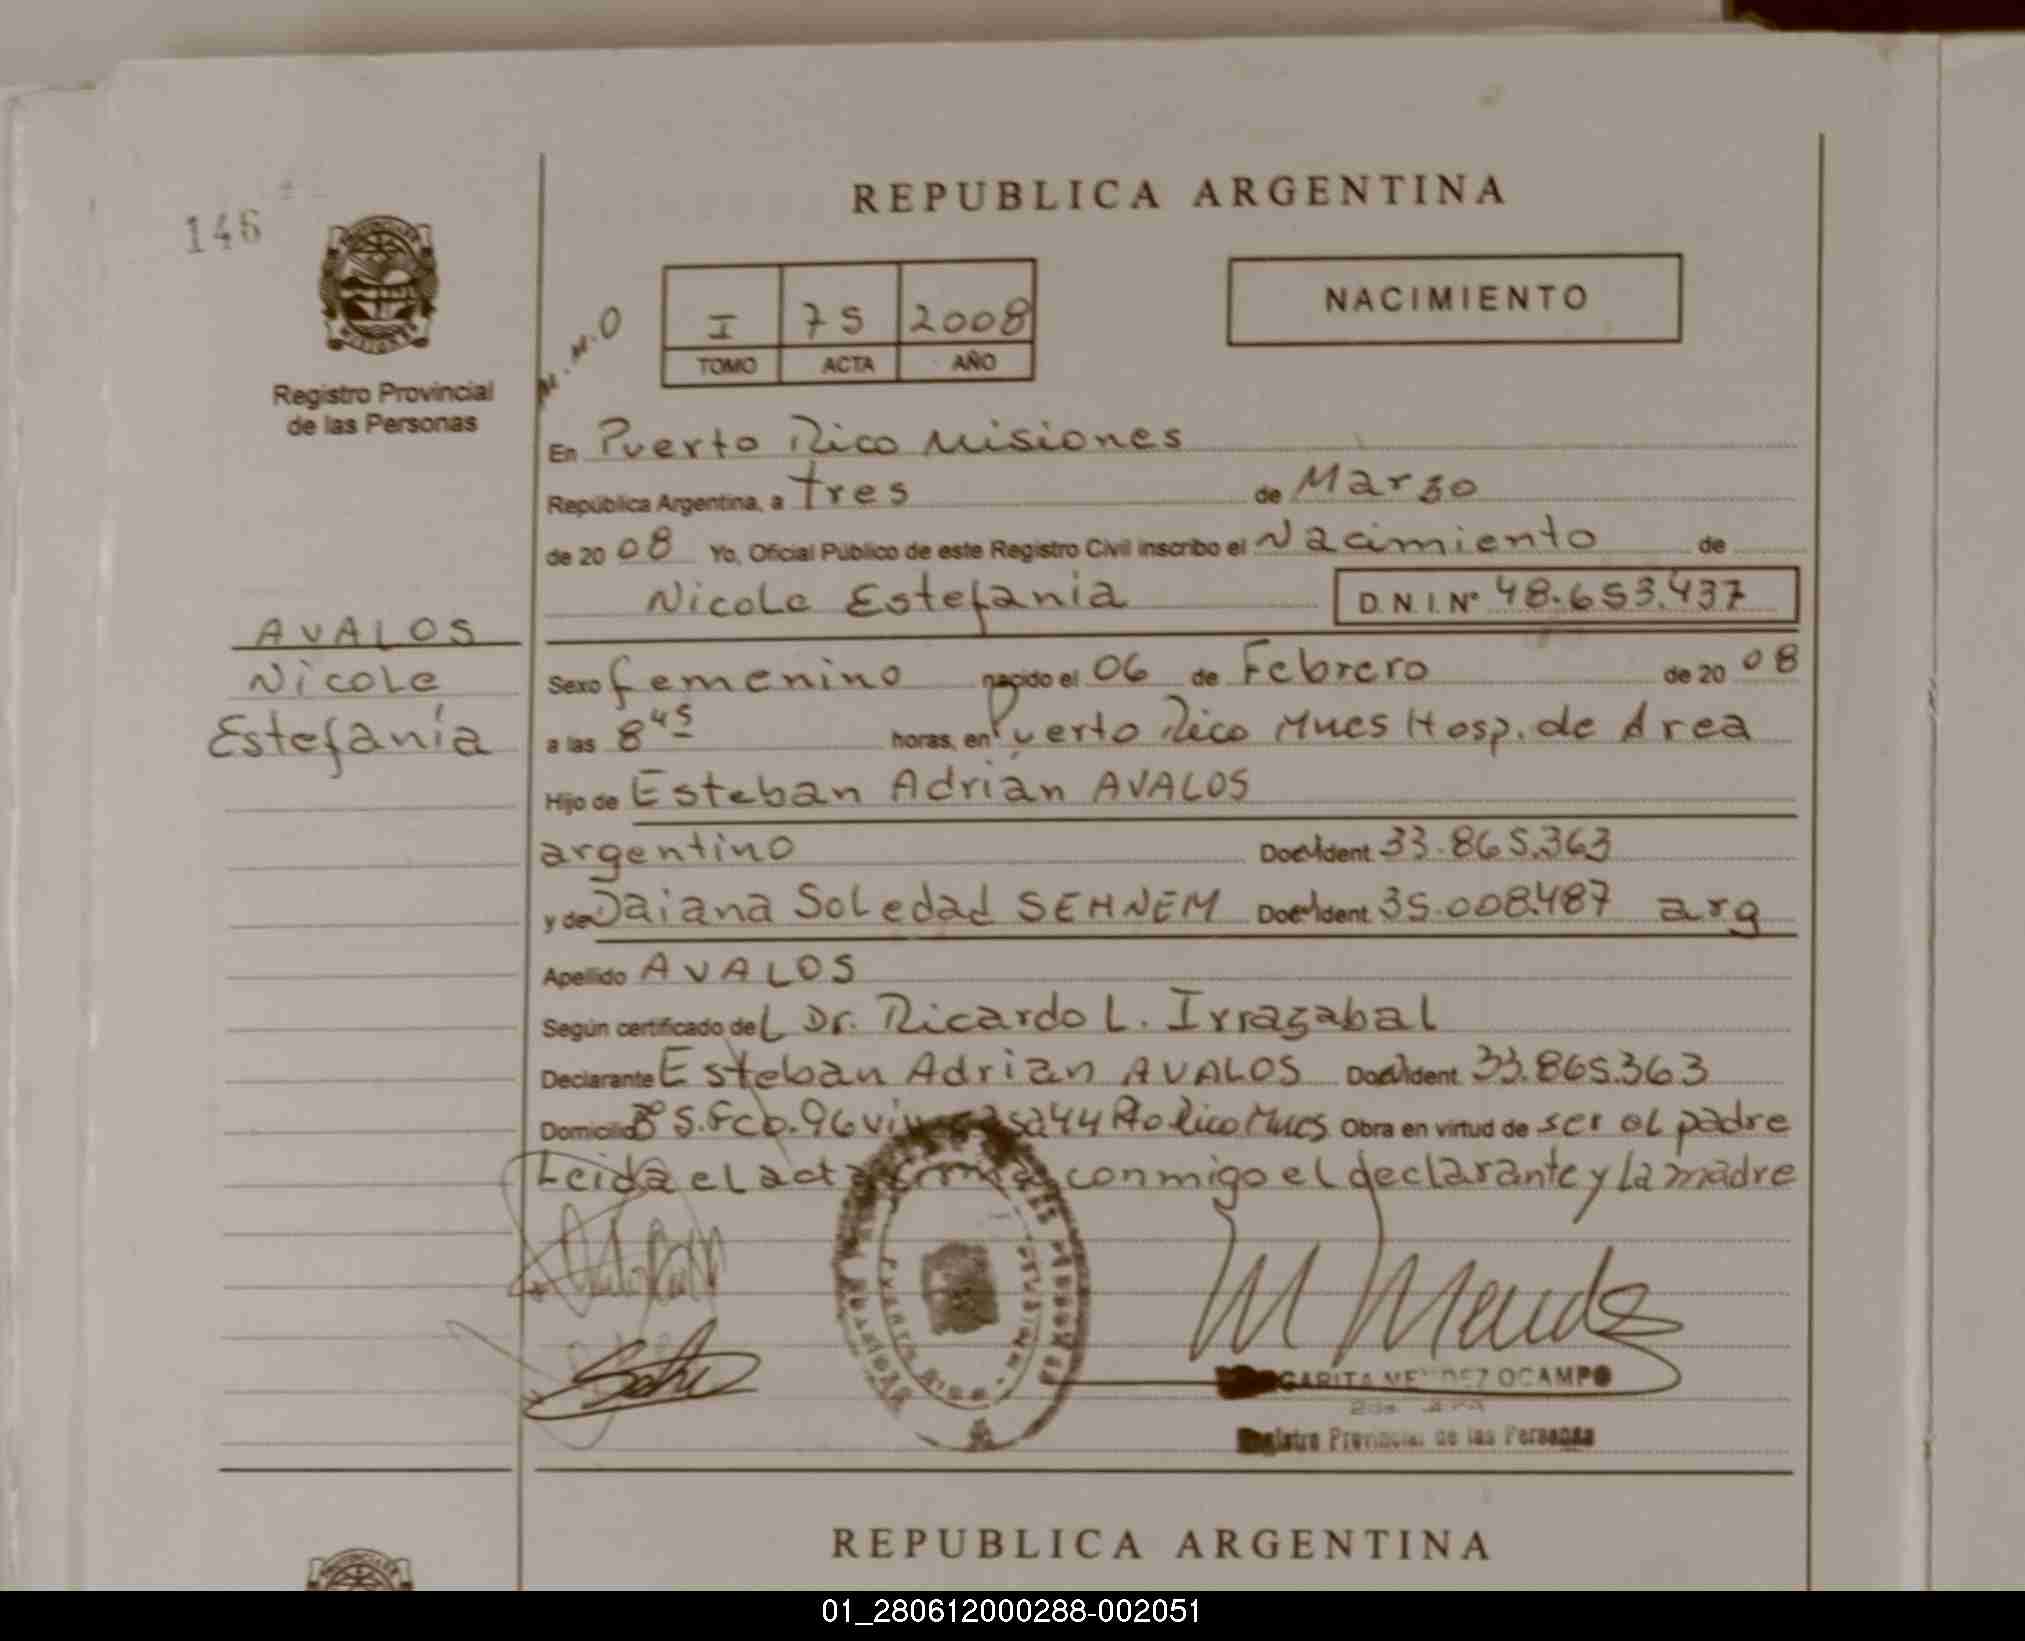 146
REPUBLICA ARGENTINA
NACIMIENTO
I 75 2008
TOMO ACTA AÑO
M.M.O
Registro Provincial
de las Personas
En Puerto Rico Misiones
República Argentina, a tres de Marzo
de 20 08 Yo, Oficial Público de este Registro Civil inscribo el Nacimiento de
Nicole Estefania D.N.I.Nº 48.653.437
AVALOS
Nicole
Estefanía
Sexo femenino nacido el 06 de Febrero de 20 08
a las 8 45 horas, en Puerto Rico Mnes Hosp. de Area
Hijo de Esteban Adrián AVALOS
argentino Doc. Ident. 33.865.363
y de Daiana Soledad SEHNEM Doc. Ident. 35.008.487 arg
Apellido AVALOS
Según certificado del Dr. Ricardo L. Irrazabal
Declarante Esteban Adrian AVALOS Doc. Ident. 33.865.363
Domicilio Bº S. Fco. 96 viv casa 44 Pto Rico Mnes Obra en virtud de ser el padre
Leida el acta firman conmigo el declarante y la madre
M Mendez
MENDEZ OCAMPO
Registro Provincial de las Personas
REPUBLICA ARGENTINA
01_280612000288-002051